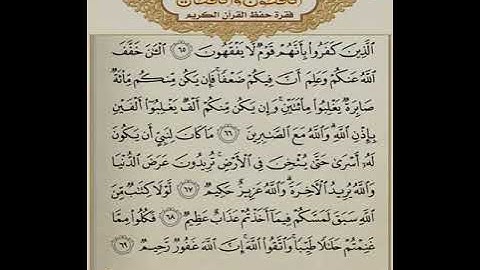 فقرة حفظ القرآن الكريم
الَّذِينَ كَفَرُوا بِأَنَّهُمْ قَوْمٌ لَّا يَفْقَهُونَ ٦٥ الْـَٰٔنَ خَفَّفَ
اللَّهُ عَنكُمْ وَعَلِمَ أَنَّ فِيكُمْ ضَعْفًا فَإِن يَكُن مِّنكُم مِّائَةٌ
صَابِرَةٌ يَغْلِبُوا مِائَتَيْنِ وَإِن يَكُن مِّنكُمْ أَلْفٌ يَغْلِبُوا أَلْفَيْنِ
بِإِذْنِ اللَّهِ وَاللَّهُ مَعَ الصَّٰبِرِينَ ٦٦ مَا كَانَ لِنَبِيٍّ أَن يَكُونَ
لَهُۥ أَسْرَىٰ حَتَّىٰ يُثْخِنَ فِي الْأَرْضِ تُرِيدُونَ عَرَضَ الدُّنْيَا
وَاللَّهُ يُرِيدُ الْآخِرَةَ وَاللَّهُ عَزِيزٌ حَكِيمٌ ٦٧ لَّوْلَا كِتَٰبٌ مِّنَ
اللَّهِ سَبَقَ لَمَسَّكُمْ فِيمَا أَخَذْتُمْ عَذَابٌ عَظِيمٌ ٦٨ فَكُلُوا مِمَّا
غَنِمْتُمْ حَلَٰلًا طَيِّبًا وَاتَّقُوا اللَّهَ إِنَّ اللَّهَ غَفُورٌ رَّحِيمٌ ٦٩